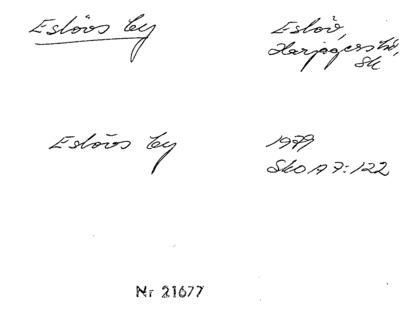 Eslövs by
Eslöv,
Harjagers hd,
Sk
Eslövs by
1979
Sko A 7:122
Nr 21677